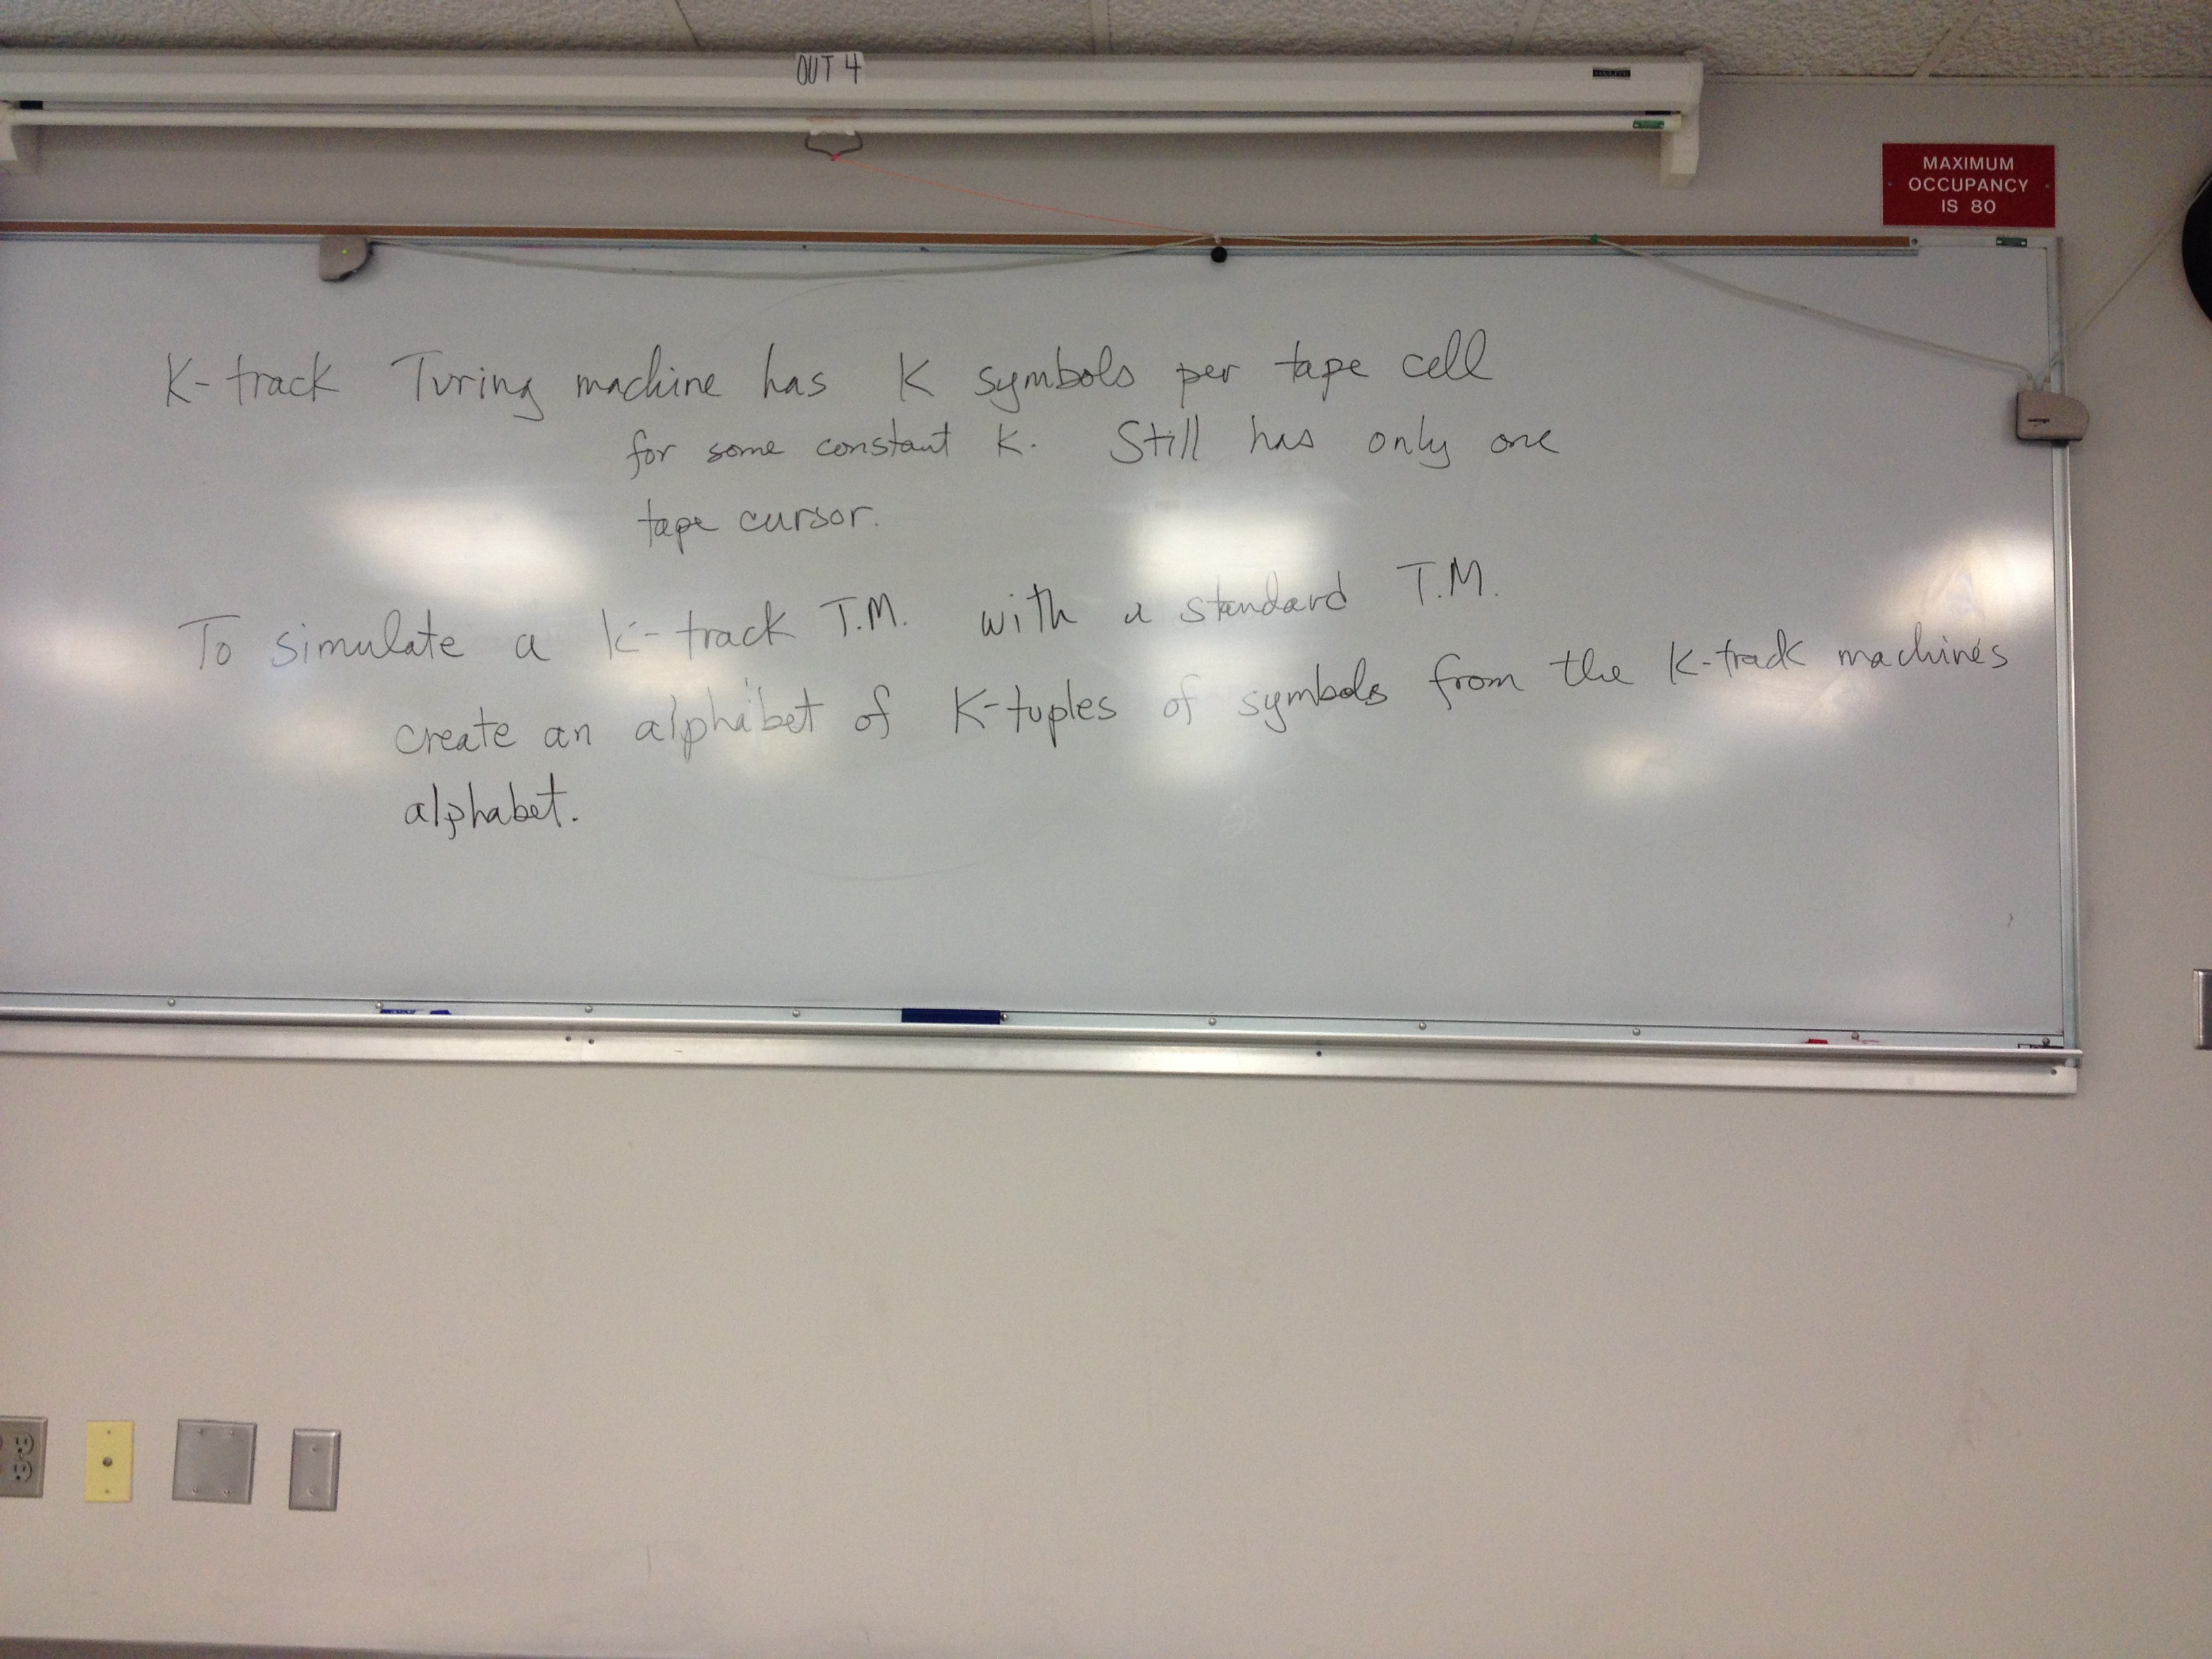 OUT 4
MAXIMUM
OCCUPANCY
IS 80
K-track Turing machine has K symbols per tape cell
for some constant K. Still has only one
tape cursor.
To simulate a K-track T.M. with a standard T.M.
create an alphabet of K-tuples of symbols from the K-track machine's
alphabet.